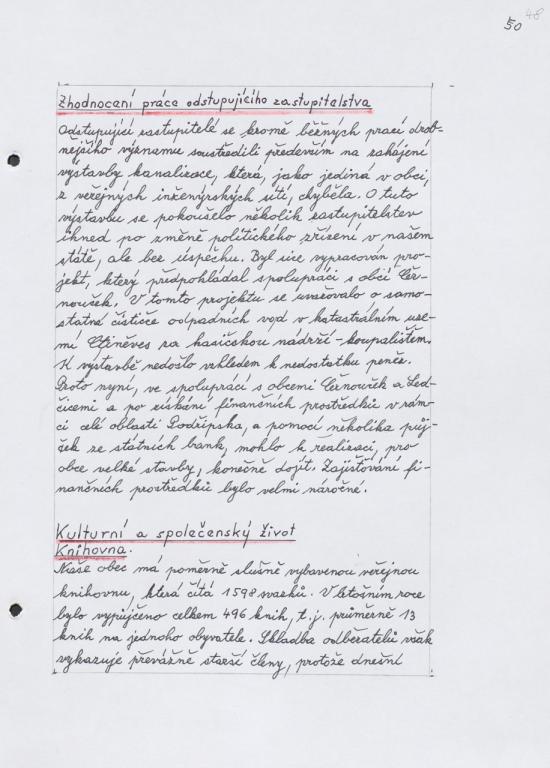 48
50
Zhodnocení práce odstupujícího zastupitelstva
Odstupující zastupitelé se kromě běžných prací drob-
nějšího významu soustředili především na zahájení
výstavby kanalizace, která, jako jediná v obci,
z veřejných inženýrských sítí, chyběla. O tuto
výstavbu se pokoušelo několik zastupitelstev
ihned po změně politického zřízení v našem
státě, ale bez úspěchu. Byl sice vypracován pro-
jekt, který předpokládal spolupráci s obcí Čer-
nouček. V tomto projektu se uvažovalo o samo-
statné čističce odpadních vod v katastrálním úze-
mí Ctiněves za hasičskou nádrží - koupalištěm.
K výstavbě nedošlo vzhledem k nedostatku peněz.
Proto nyní, ve spolupráci s obcemi Černouček a Led-
čicemi a po získání finančních prostředků v rám-
ci celé oblasti Podřipska, a pomocí několika půj-
ček ze státních bank, mohlo k realizaci, pro
obce velké stavby, konečně dojít. Zajišťování fi-
nančních prostředků bylo velmi náročné.
Kulturní a společenský život
Knihovna.
Naše obec má poměrně slušně vybavenou veřejnou
knihovnu, která čítá 1598 svazků. V letošním roce
bylo vypůjčeno celkem 496 knih, t. j. průměrně 13
knih na jednoho obyvatele. Skladba odběratelů však
vykazuje převážně starší členy, protože dnešní